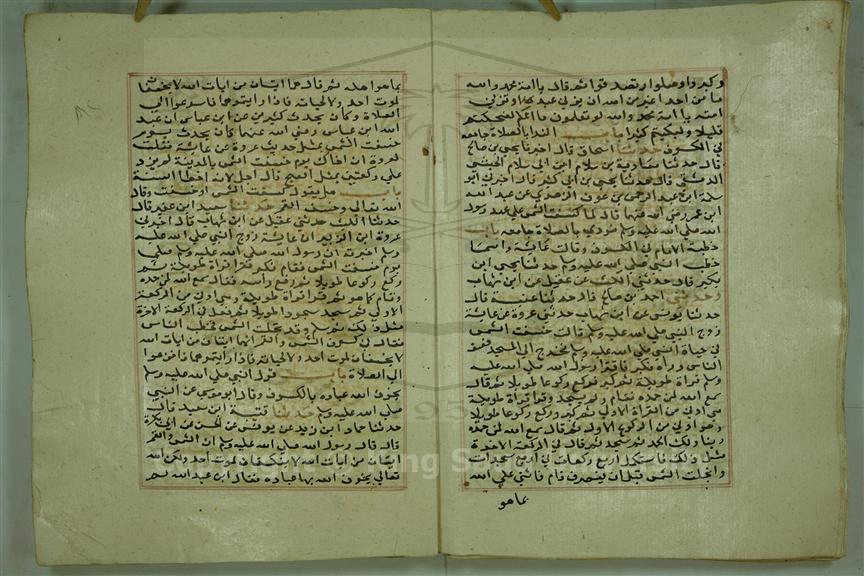 وكبروا وصلوا وتصدقوا ثم قال يا امة محمد والله
ما من احد اغير من الله ان يزني عبده او تزني
امته يا امة محمد والله لو تعلمون ما اعلم لضحكتم
قليلا ولبكيتم كثيرا باب النداء بالصلاة جامعة
في الكسوف حدثنا اسحاق قال اخبرنا يحيى بن صالح
قال حدثنا معاوية بن سلام ابن ابي سلام الحبشي
الدمشقي قال حدثنا يحيى بن ابي كثير قال اخبرني ابو
سلمة ابن عبد الرحمن بن عوف الزهري عن عبد الله
ابن عمر رضي الله عنهما قال لما كسفت الشمس على عهد رسول
الله صلى الله عليه وسلم نودي بالصلاة جامعة باب
خطبة الامام في الكسوف وقالت عائشة واسما
خطب النبي صلى الله عليه وسلم حدثنا يحيى ابن
بكير قال حدثني الليث عن عقيل عن ابن شهاب
وحدثني احمد بن صالح قال حدثنا عنبسة قال
حدثنا يونس عن ابن شهاب حدثني عروة عن عائشة
زوج النبي صلى الله عليه وسلم قالت خسفت الشمس
في حياة النبي صلى الله عليه وسلم فخرج الى المسجد فصف
الناس وراه فكبر فاقترا رسول الله صلى الله عليه
وسلم قراة طويلة ثم كبر فركع ركوعا طويلا ثم قال
سمع الله لمن حمده فقام ولم يسجد وقرا قراة طويلة
هي ادنى من القراة الاولى ثم كبر وركع ركوعا طويلا
وهو ادنى من الركوع الاول ثم قال سمع الله لمن حمده
ربنا ولك الحمد ثم سجد ثم قال في الركعة الاخرة
مثل ذلك فاستكمل اربع ركعات في اربع سجدات
وانجلت الشمس قبل ان ينصرف ثم قام فاثنى على الله
بما هو
بما هو اهله ثم قال هما ايتان من ايات الله لا يخسفان
لموت احد ولا لحياته فاذا رايتموها فافزعوا الى
الصلاة وكان يحدث كثير بن عباس ان عبد
الله ابن عباس رضي الله عنهما كان يحدث يوم
خسفت الشمس بمثل حديث عروة عن عائشة فقلت
لعروة ان اخاك يوم خسفت الشمس بالمدينة لم يزد
على ركعتين مثل الصبح قال اجل لانه اخطا السنة
باب هل يقول كسفت الشمس او خسفت وقال
الله تعالى وخسف القمر حدثنا سعيد ابن عفير قال
حدثنا الليث حدثني عقيل عن ابن شهاب قال اخبرني
عروة ابن الزبير ان عائشة زوج النبي صلى الله عليه
وسلم اخبرته ان رسول الله صلى الله عليه وسلم صلى
يوم خسفت الشمس فقام فكبر فقرا قراة طويلة ثم
ركع ركوعا طويلا ثم رفع راسه فقال سمع الله لمن حمده
وقام كما هو ثم قرا قراة طويلة وهي ادنى من الركعة
الاولى ثم سجد سجودا طويلا ثم فعل في الركعة الاخرة
مثل ذلك ثم سلم وقد تجلت الشمس فخطب الناس
فقال في كسوف الشمس والقمر انهما ايتان من ايات الله
لا يخسفان لموت احد ولا لحياته فاذا رايتموهما فافزعوا
الى الصلاة باب قول النبي صلى الله عليه وسلم
يخوف الله عباده بالكسوف وقال ابو موسى عن النبي
صلى الله عليه وسلم حدثنا قتيبة ابن سعيد قال
حدثنا حماد ابن زيد عن يونس عن الحسن عن ابي بكرة
قال قال رسول الله صلى الله عليه وسلم ان الشمس والقمر
ايتان من ايات الله لا ينكسفان لموت احد ولكن الله
تعالى يخوف الله بها عباده فقال ابن عبد الله لم